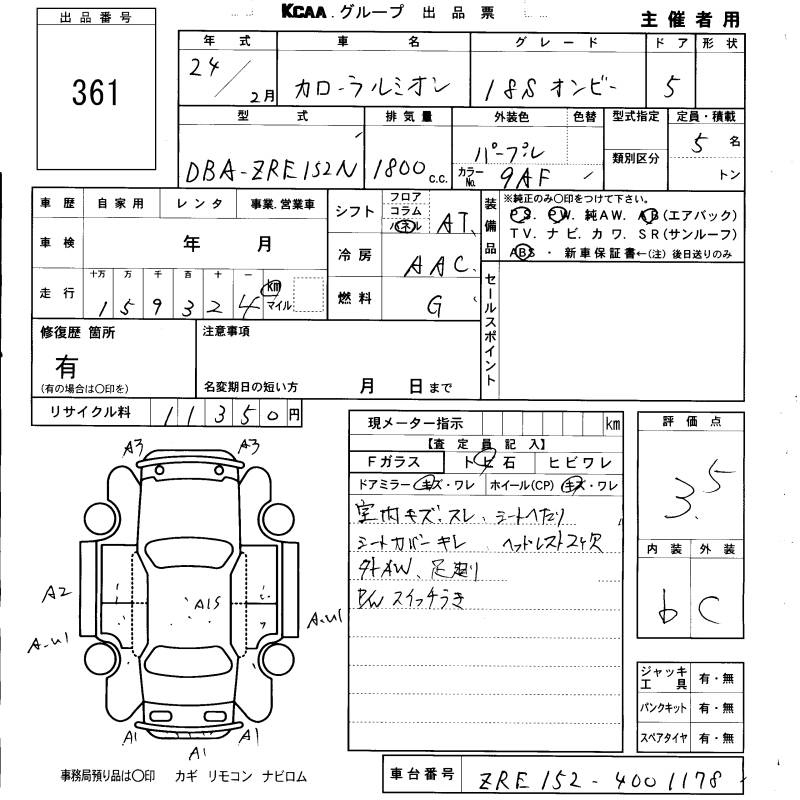 KCAA.グループ 出品票
主催者用
出品番号
361
年式 車名 グレード ドア 形状
24/2月 カローラルミオン 18S オンビー 5
型式 排気量 外装色 色替 型式指定 定員・積載
DBA-ZRE152N 1800c.c. パープル 5名
カラーNo. 9AF 類別区分 トン
車歴 自家用 レンタ 事業.営業車
車検 年 月
走行 十万 万 千 百 十 一
159324 km マイル
シフト フロア コラム パネル AT
冷房 AAC
燃料 G
装備品 ※純正のみ○印をつけて下さい。
PS. PW. 純AW. AB(エアバック)
TV. ナビ. カワ. SR(サンルーフ)
ABS ・ 新車保証書←(注)後日送りのみ
セールスポイント
修復歴 箇所
有
(有の場合は○印を)
注意事項
名変期日の短い方 月 日まで
リサイクル料 11350円
現メーター指示 km
【査定員記入】
Fガラス トビ石 ヒビワレ
ドアミラー キズ・ワレ ホイール(CP) キズ・ワレ
室内キズ、スレ、シートへたり
シートカバーキレ ヘッドレスト2ヶ欠
外AW、足廻り
スイッチうき
評価点
3.5
内装 外装
b C
ジャッキ工具 有・無
パンクキット 有・無
スペアタイヤ 有・無
A3 A3
A2 A1S A-U1
A-U1
A1 A1 A1
事務局預り品は○印 カギ リモコン ナビロム
車台番号 ZRE152-4001178